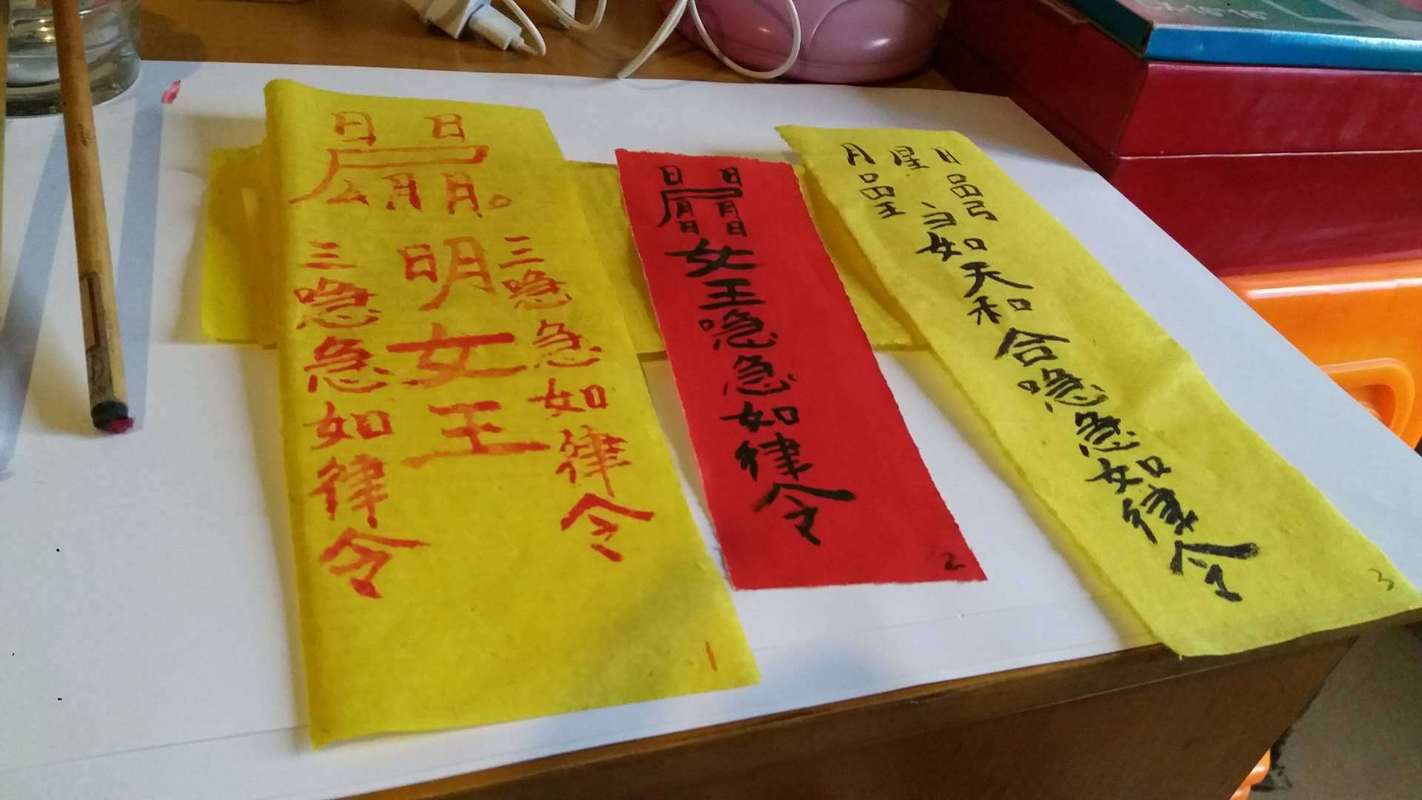 日 日
三喼急如律令
明女王
三喼急如律令
1
日 日
女王喼急如律令
2
月 星 日
如天和合喼急如律令
3